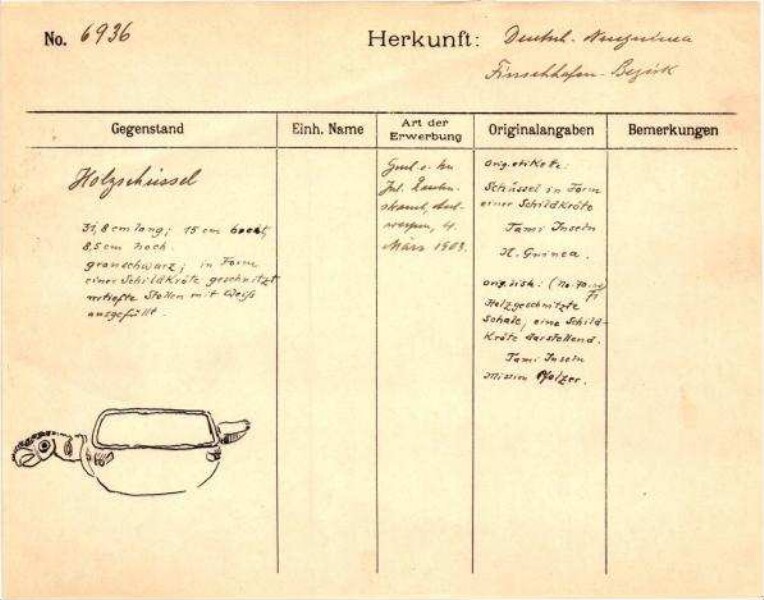 No. 6936
Herkunft: Deutsch. Neuguinea
Finschhafen-Bezirk
Gegenstand
Einh. Name
Art der Erwerbung
Originalangaben
Bemerkungen
Holzschüssel
31,8 cm lang; 15 cm breit,
8,5 cm hoch.
grauschwarz; in Form
einer Schildkröte geschnitzt
vertiefte Stellen mit Weiß
ausgefüllt.
Jul.
4.
März 1903.
Orig. etikette:
Schüssel in Form
einer Schildkröte
Tami Inseln
N. Guinea.
Orig. lisk: (No.
Holzgeschnitzte
Schale, eine Schild-
kröte darstellend.
Tami Inseln
Mission